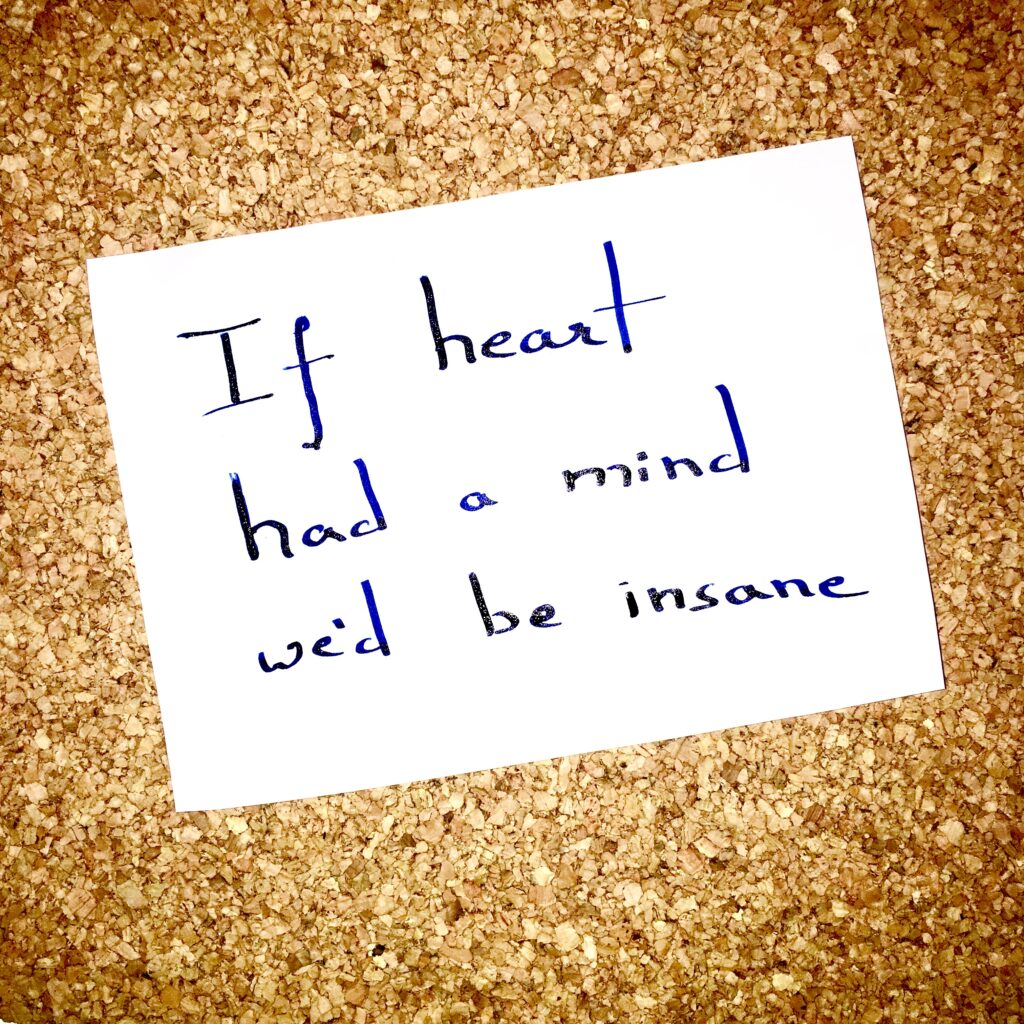 If heart
had a mind
we'd be insane